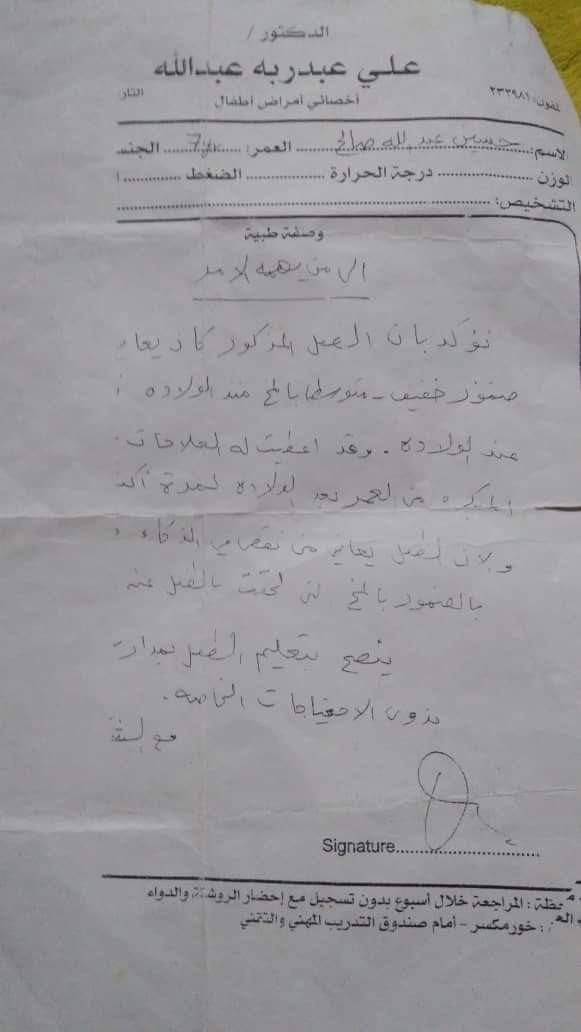 الدكتور /
علي عبدربه عبدالله
أخصائي أمراض أطفال
التار
تلفون: ٢٣٢٩٨١
الاسم: حسين عبدالله صالح العمر: 7yr الجنس
الوزن درجة الحرارة الضغط
التشخيص:
وصفة طبية
الى من يهمه الامر
نؤكد بان الطفل المذكور كان يعا
ضمور خفيف - متوسط بالمخ منذ الولاده
عند الولاده . وقد اعطيت له العلاجات
المبكره من العمر بعد الولاده لمدة
ولان الطفل يعاني من نقص في الذكاء
بالضمور بالمخ التي لحقت بالطفل عند
ينصح بتعليم الطفل بمدارس
بذوي الاحتياجات الخاصه .
مع
Signature
ملاحظة : المراجعة خلال أسبوع بدون تسجيل مع إحضار الروشتة والدواء
: خورمكسر - أمام صندوق التدريب المهني والتقني